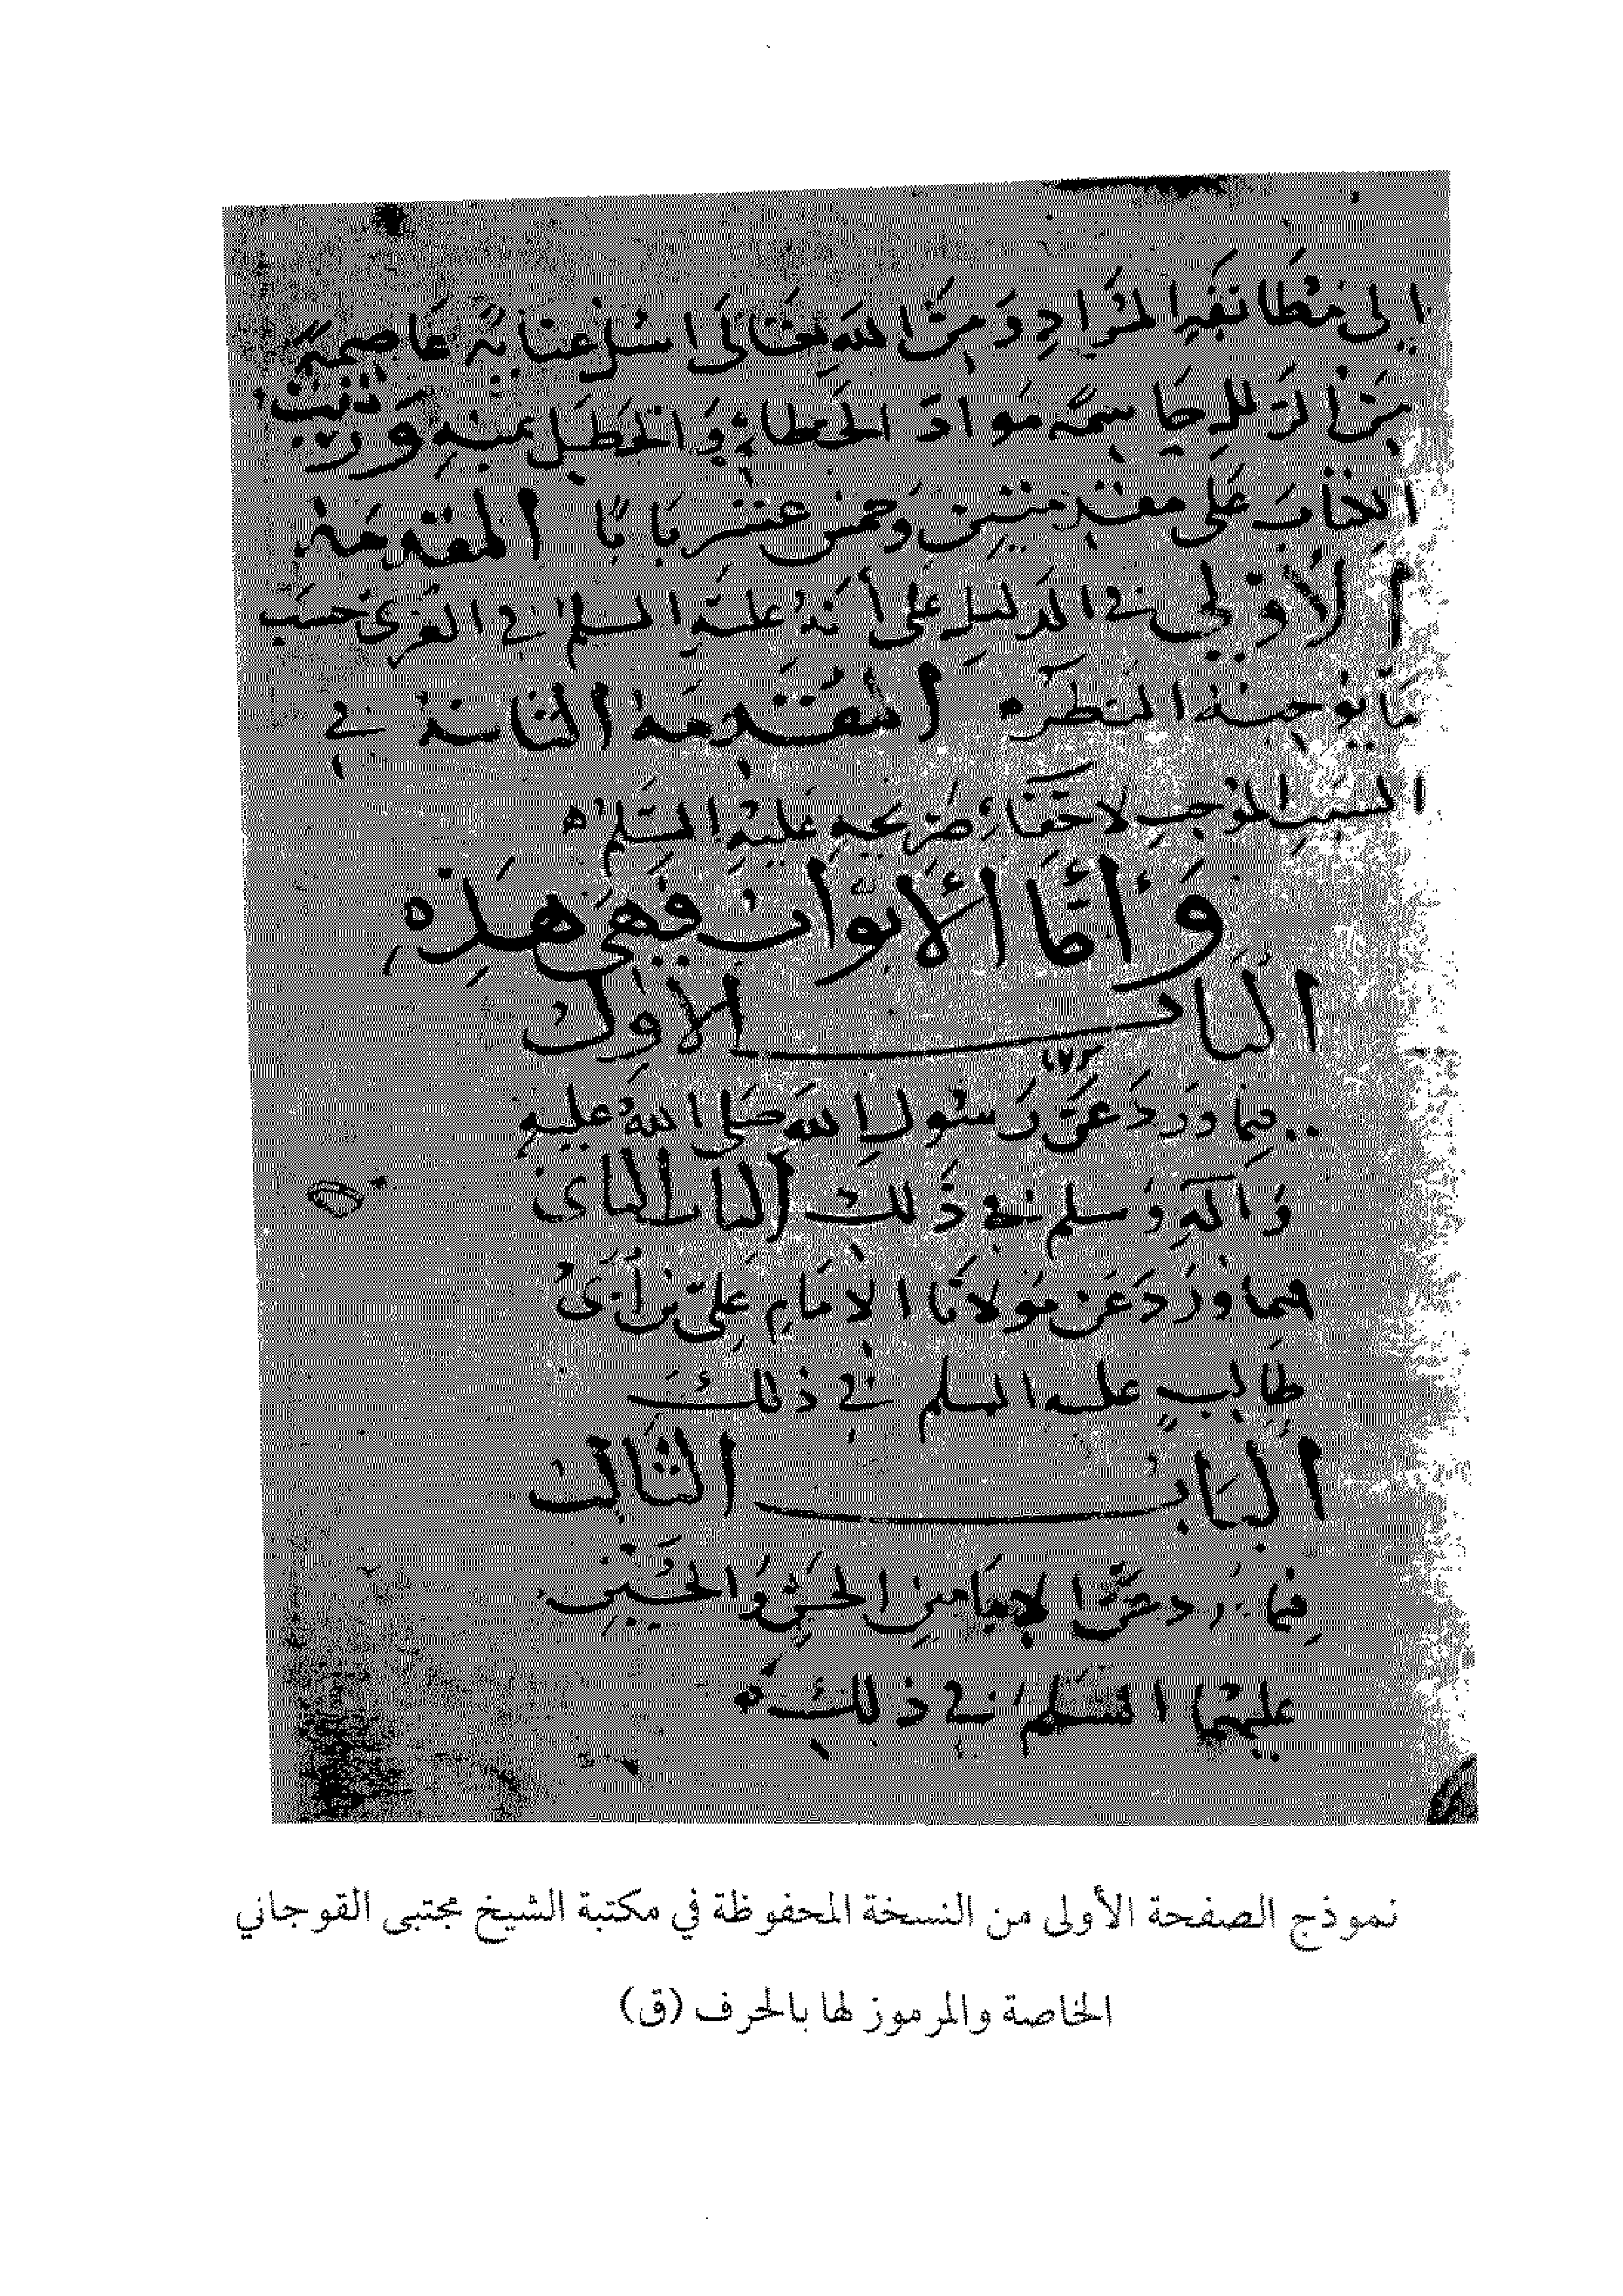 إلى مطابقة المراد ومن الله تعالى اسل عناية عاصمة
من الزلل حاسمة مواد الخطاء والخطل بمنه ورتبت
الكتاب على مقدمتين وخمس عشر بابا المقدمة
الأولى في الدليل على أنه عليه السلم في الغري حسب
ما يوجبه النظر المقدمة الثانية في
السبب الموجب لاخفاء ضريحه عليه السلم
وأما الأبواب فهي هذه
الباب الأول
فيما ورد عن رسول الله صلى الله عليه
وآله وسلم في ذلك الباب الثاني
فيما ورد عن مولانا الامام علي بن أبي
طالب عليه السلم في ذلك
الباب الثالث
فيما ورد عن الإمامين الحسن والحسين
عليهما السلم في ذلك
نموذج الصفحة الأولى من النسخة المحفوظة في مكتبة الشيخ مجتبى القوجاني
الخاصة والمرموز لها بالحرف (ق)